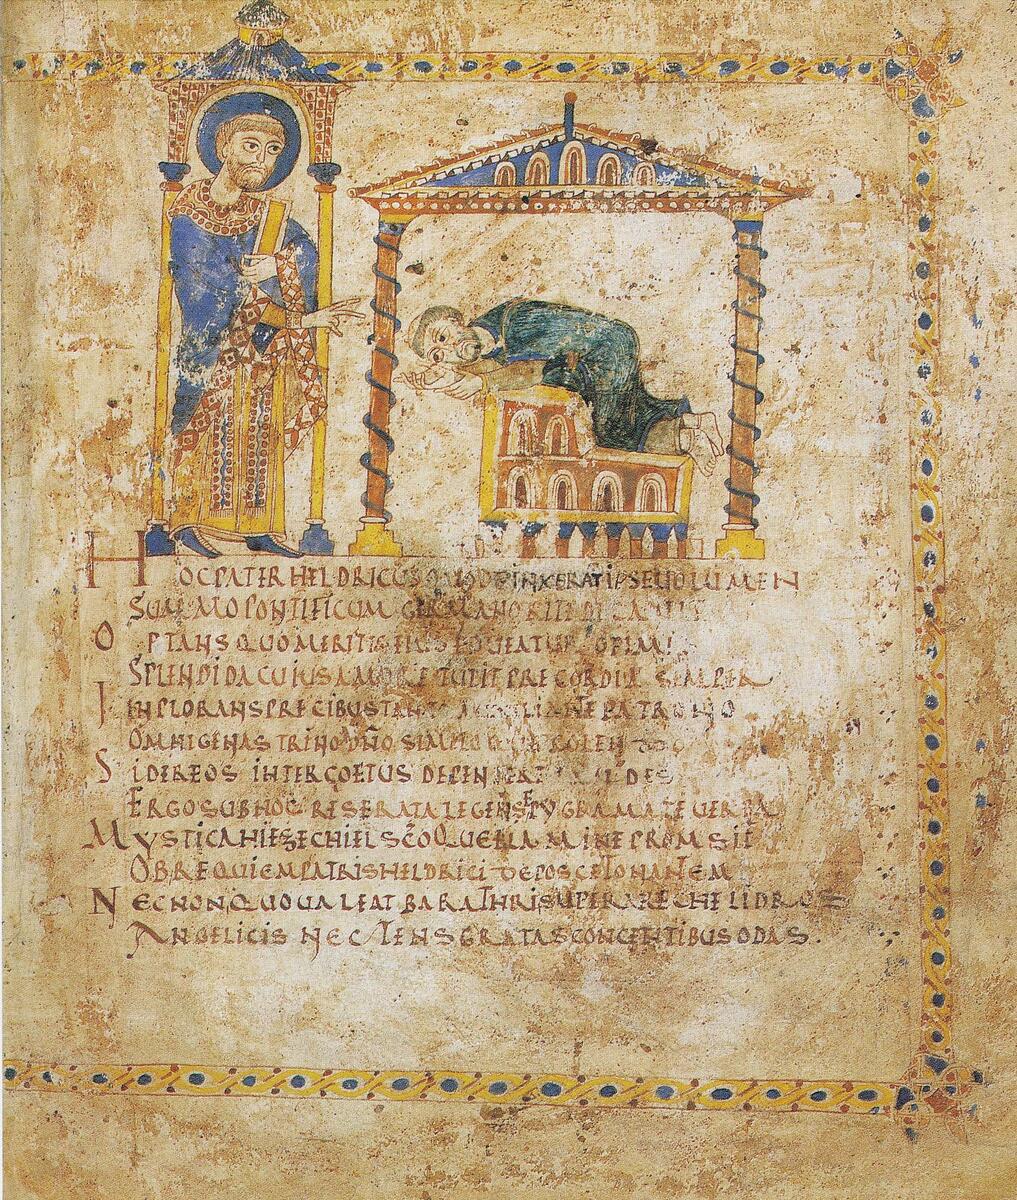 HOC PATER HELDRICUS QUOD PINXERAT IPSE UOLUMEN
SUMMO PONTIFICUM GERMANO RITE DICAUIT
OPTANS QUO MERITIS EIUS
SPLENDIDA CUIUS AMORE TULIT PRECORDIA SEMPER
INPLORANS PRECIBUS PATRONO
OMNIGENAS TRINO DÑO
SIDEREOS INTER COETUS
ERGO SUB HOC RESERATA LEGENS EPYGRAMATE UERBA
MYSTICA HIEZECHIEL SCO QUE FLAMINE PROMSIT
OB REQUIEM PATRIS HELDRICI DEPOSCE TONANTEM
NECNON QUO UALEAT BARATHRI SUPERARE CHELIDROS
ANGELICIS NECTENS GRATAS CONCENTIBUS ODAS.